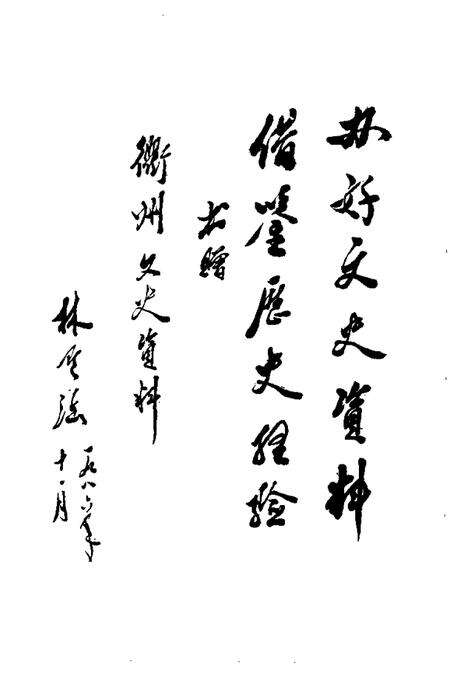 办好文史资料
借鉴历史经验
书赠
衢州文史资料
林
一九八六年
十一月